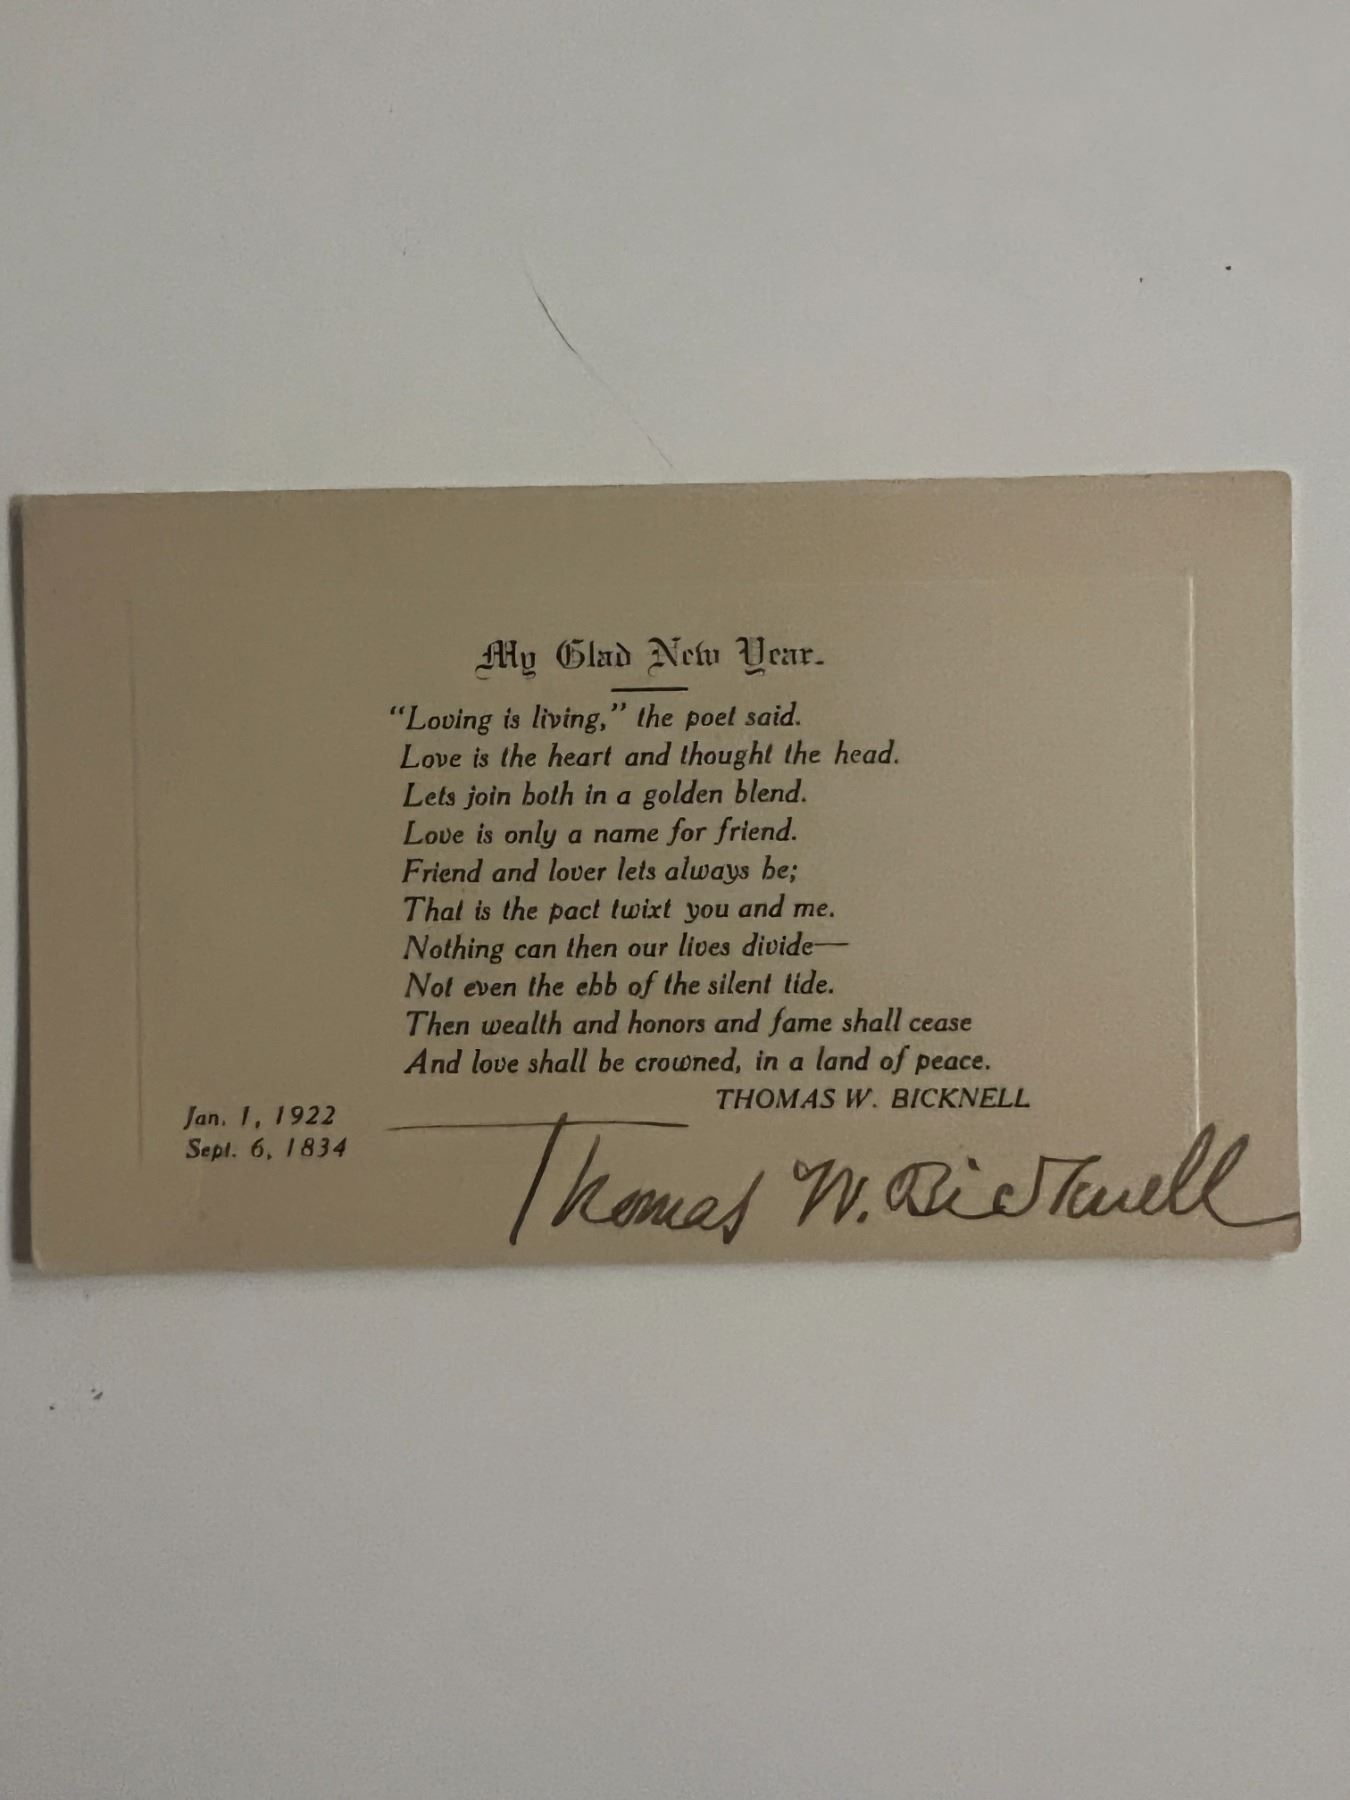 My Glad New Year.
“Loving is living,” the poet said.
Love is the heart and thought the head.
Lets join both in a golden blend.
Love is only a name for friend.
Friend and lover lets always be;
That is the pact twixt you and me.
Nothing can then our lives divide—
Not even the ebb of the silent tide.
Then wealth and honors and fame shall cease
And love shall be crowned, in a land of peace.
THOMAS W. BICKNELL
Jan. 1, 1922
Sept. 6, 1834
Thomas W. Bicknell